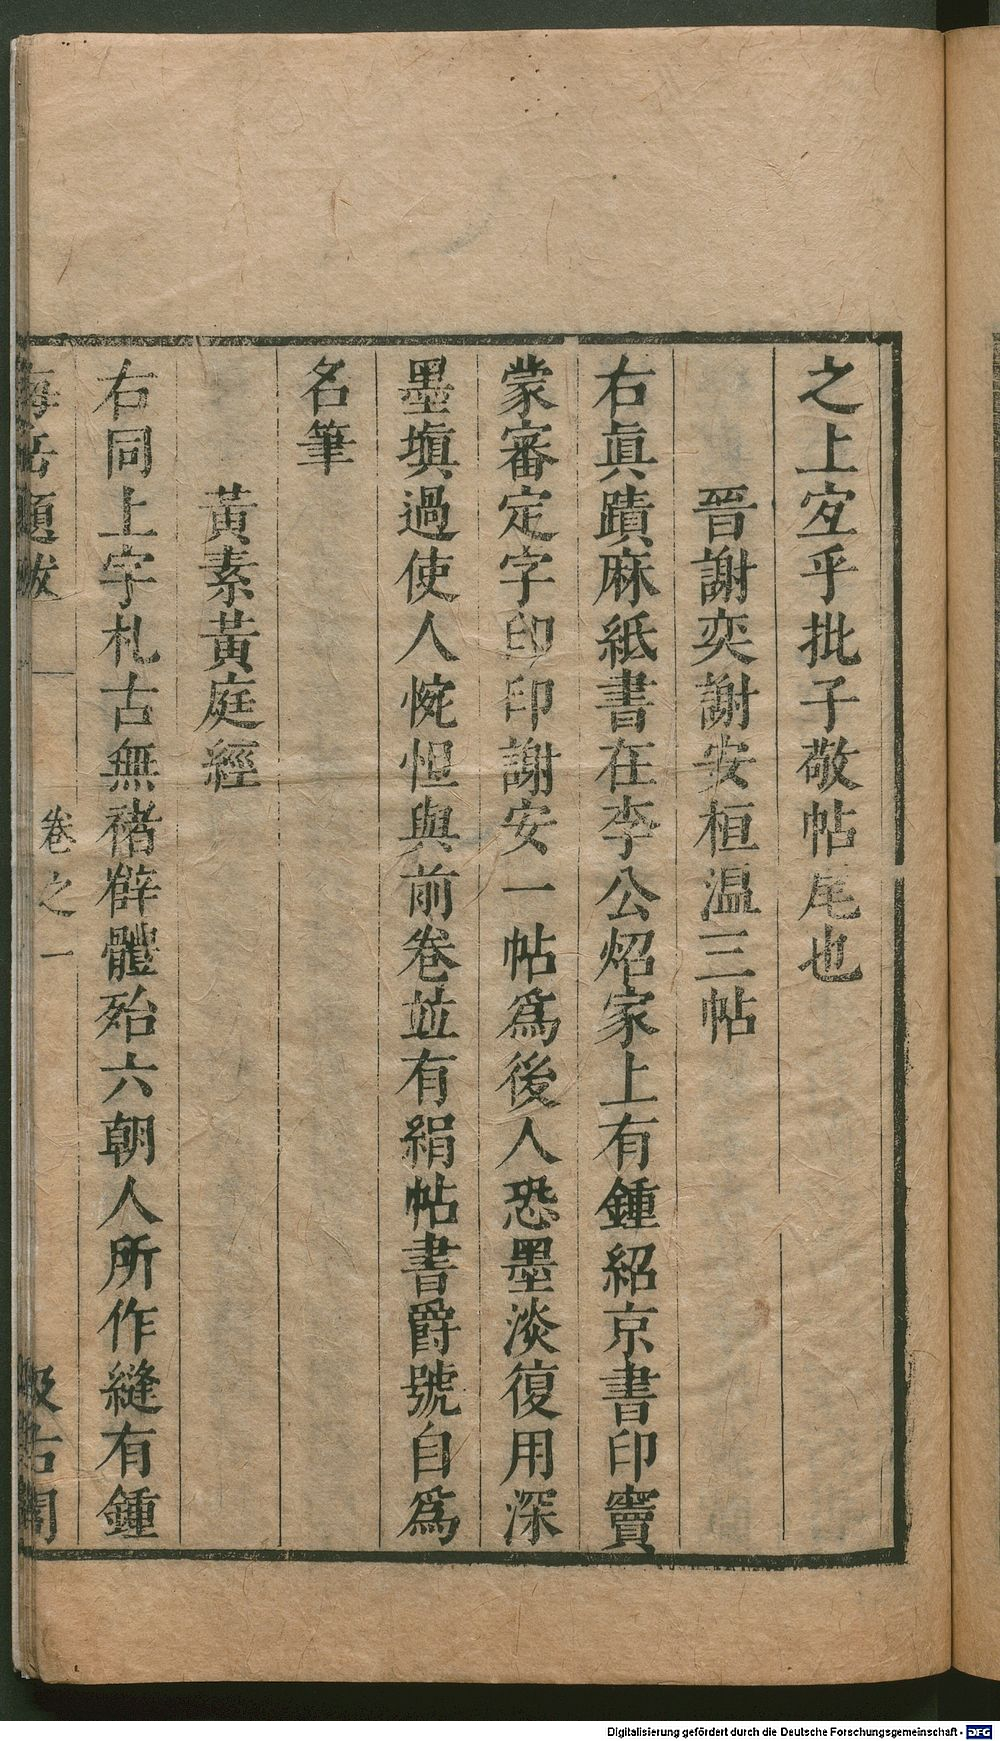 之上宐乎批子敬帖尾也
晉謝奕謝安桓温三帖
右眞蹟麻紙書在李公炤家上有鍾紹京書印竇
蒙審定字印印謝安一帖爲後人恐墨淡復用深
墨塡過使人惋怛與前卷竝有絹帖書爵號自爲
名筆
黃素黃庭經
右同上字札古無褚薛體殆六朝人所作縫有鍾
海岳題跋 卷之一 汲古閣
Digitalisierung gefördert durch die Deutsche Forschungsgemeinschaft - DFG